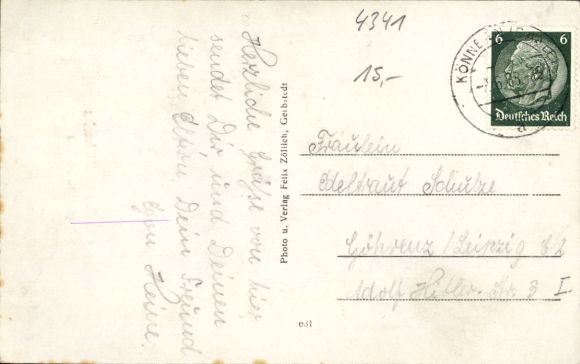 4341
15,-
6 6
Deutsches Reich
KÖNNE
a
Herzliche Grüße von hier
sendet Dir und Deinen
lieben Eltern Dein Freund
Heine.
Photo u. Verlag Felix Zöllich, Gerbstedt
Fräulein
Edeltraut Schulze
Göhrenz/Leipzig
Adolf Hitler-Str. 3 I.
631